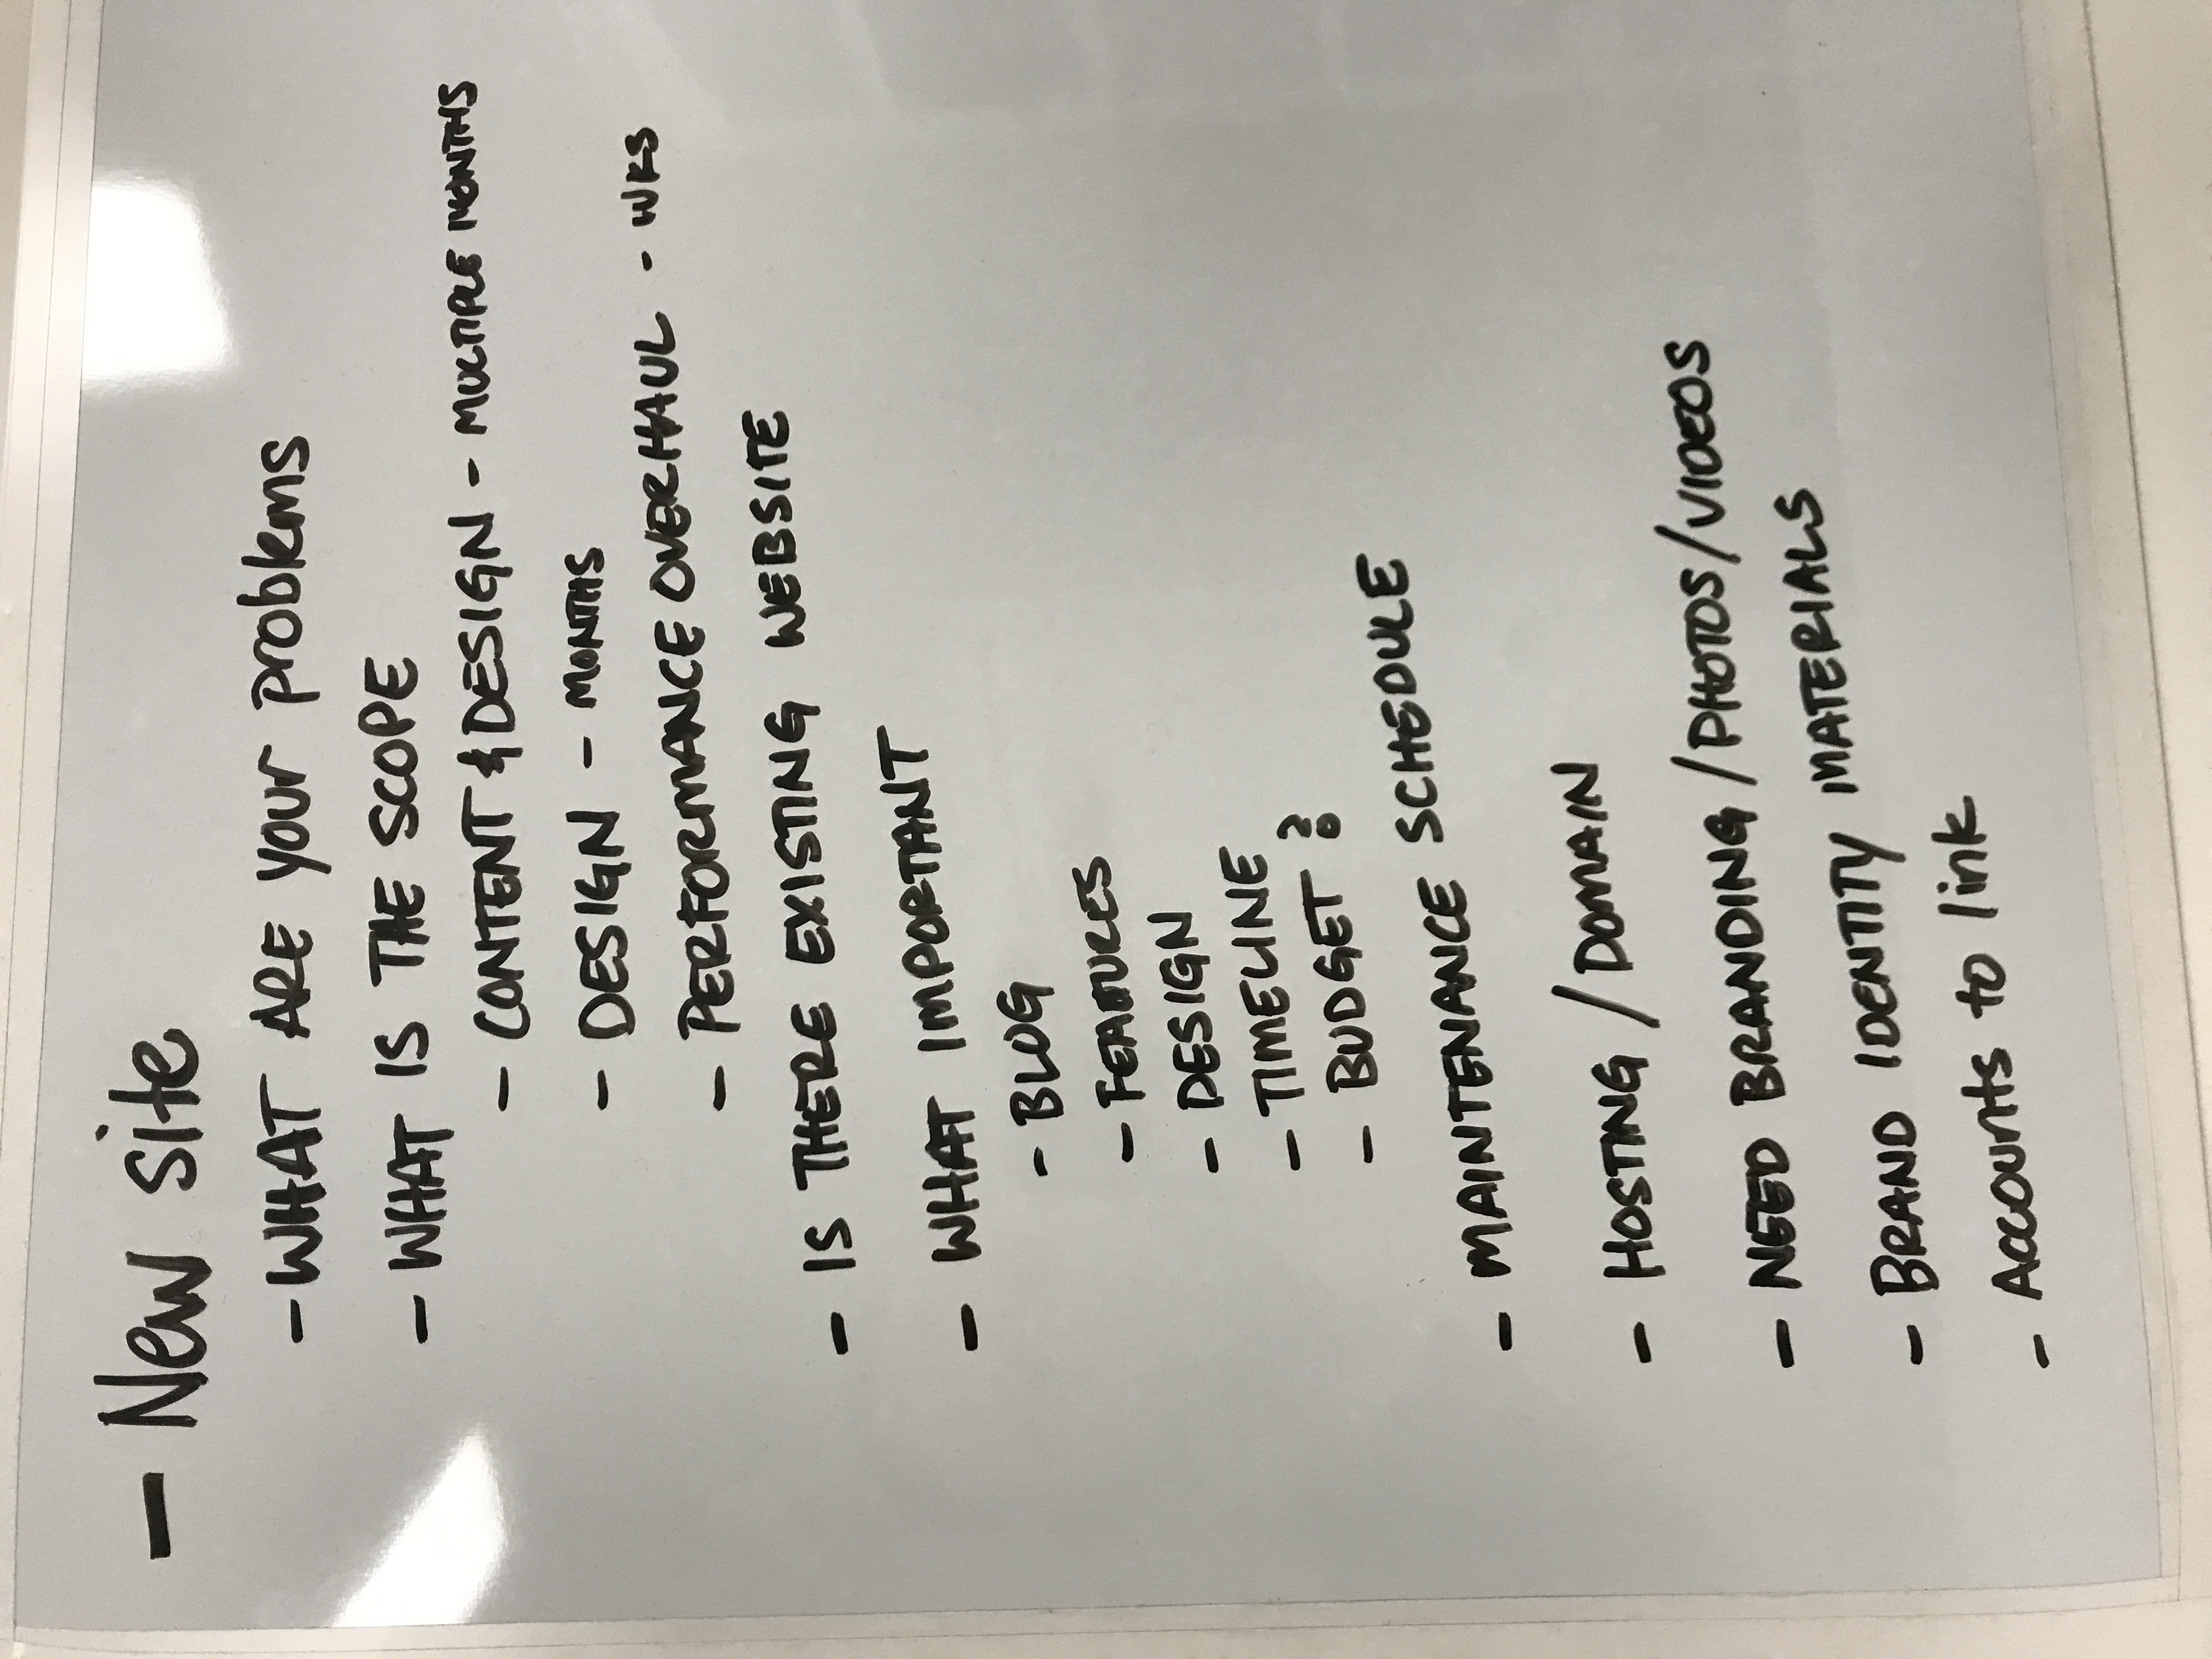 - New site
- WHAT ARE your problems
- WHAT IS THE SCOPE
- CONTENT & DESIGN - MULTIPLE MONTHS
- DESIGN - MONTHS
- PERFORMANCE OVERHAUL - WKS
- IS THERE EXISTING WEBSITE
- WHAT IMPORTANT
- BLOG
- FEATURES
- DESIGN
- TIMELINE
- BUDGET ?
- MAINTENANCE SCHEDULE
- HOSTING / DOMAIN
- NEED BRANDING / PHOTOS / VIDEOS
- BRAND IDENTITY MATERIALS
- Accounts to link